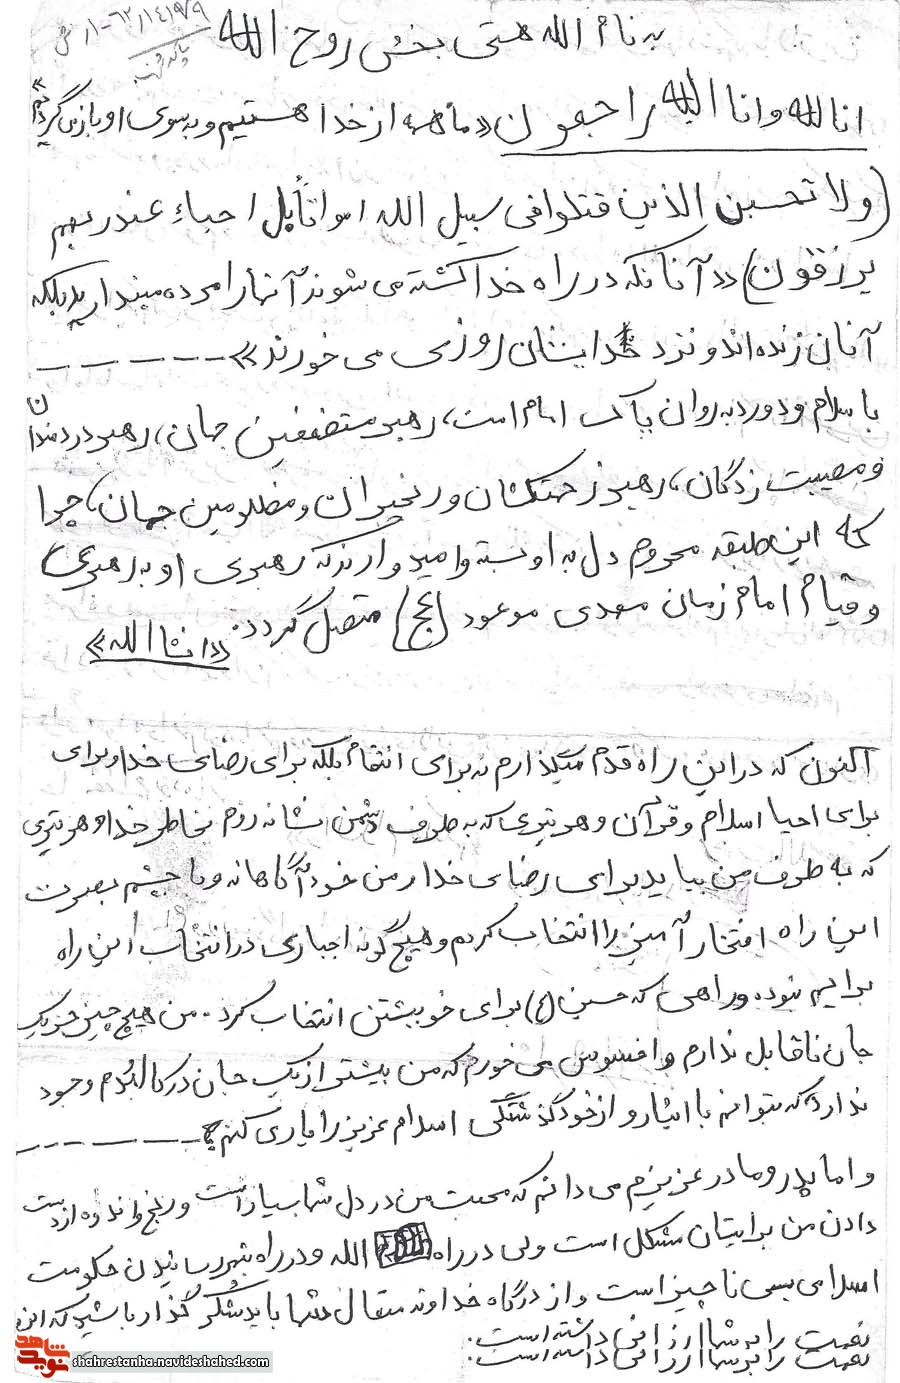 به نام الله هستی بخش روح الله
انا لله وانا الیه راجعون «ما همه از خدا هستیم و به سوی او باز می گردیم»
(ولا تحسبن الذین قتلوا فی سبیل الله امواتاً بل احیاء عند ربهم
یرزقون) «آنانکه در راه خدا کشته می شوند آنها را مرده مپندارید بلکه
آنان زنده اند و نزد خدایشان روزی می خورند»
با سلام و درود به روان پاک امام امت، رهبر مستضعفین جهان، رهبر دردمندان
و مصیبت زدگان، رهبر زحمتکشان و رنجبران و مظلومین جهان، چرا
که این طبقه محروم دل به او بسته و امیدوارند که رهبری او به رهبری
و قیام امام زمان مهدی موعود (عج) متصل گردد. «انشاالله»
اکنون که در این راه قدم میگذارم نه برای انتقام بلکه برای رضای خدا و برای
برای احیا اسلام و قرآن و هر تیری که به طرف دشمن نشانه روم بخاطر خدا و هر تیری
که به طرف من بیاید برای رضای خدا و من خود آگاهانه و با چشم بصیرت
این راه افتخار آمیز را انتخاب کردم و هیچ گونه اجباری در انتخاب این راه
برایم نبوده و راهی که حسین (ع) برای خویشتن انتخاب کرد. من هیچ چیز جز یک
جان ناقابل ندارم و افسوس می خورم که من بیشتر از یک جان در کالبدم وجود
ندارد که بتوانم با ایثار و از خود گذشتگی اسلام عزیز را یاری کنم
و اما پدر و مادر عزیزم می دانم که محبت من در دل شما بسیار است و رنج و اندوه از دست
دادن من برایتان مشکل است ولی در راه الله و در راه بثمر رسانیدن حکومت
اسلامی بسی ناچیز است و از درگاه خداوند متعال شما باید شکر گذار باشید که این
نعمت را به شما ارزانی داشته است.
نوید شاهد
shahrestanha.navideshahed.com